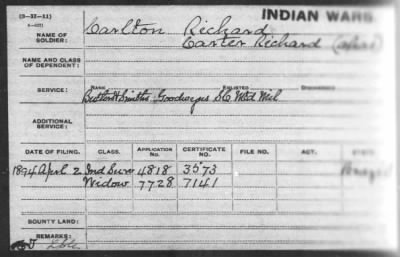 (3-32-11)
INDIAN WARS.
NAME OF SOLDIER: Carlton Richard
Carter Richard (alias)
NAME AND CLASS OF DEPENDENT:
SERVICE: RANK ENLISTED DISCHARGED
Smiths SC Mtd Mil
ADDITIONAL SERVICE:
DATE OF FILING. CLASS. APPLICATION No. CERTIFICATE NO. FILE NO. ACT.
1894 April 2 Ind Surv 4818 3573
Widow 7728 7141
BOUNTY LAND:
REMARKS: